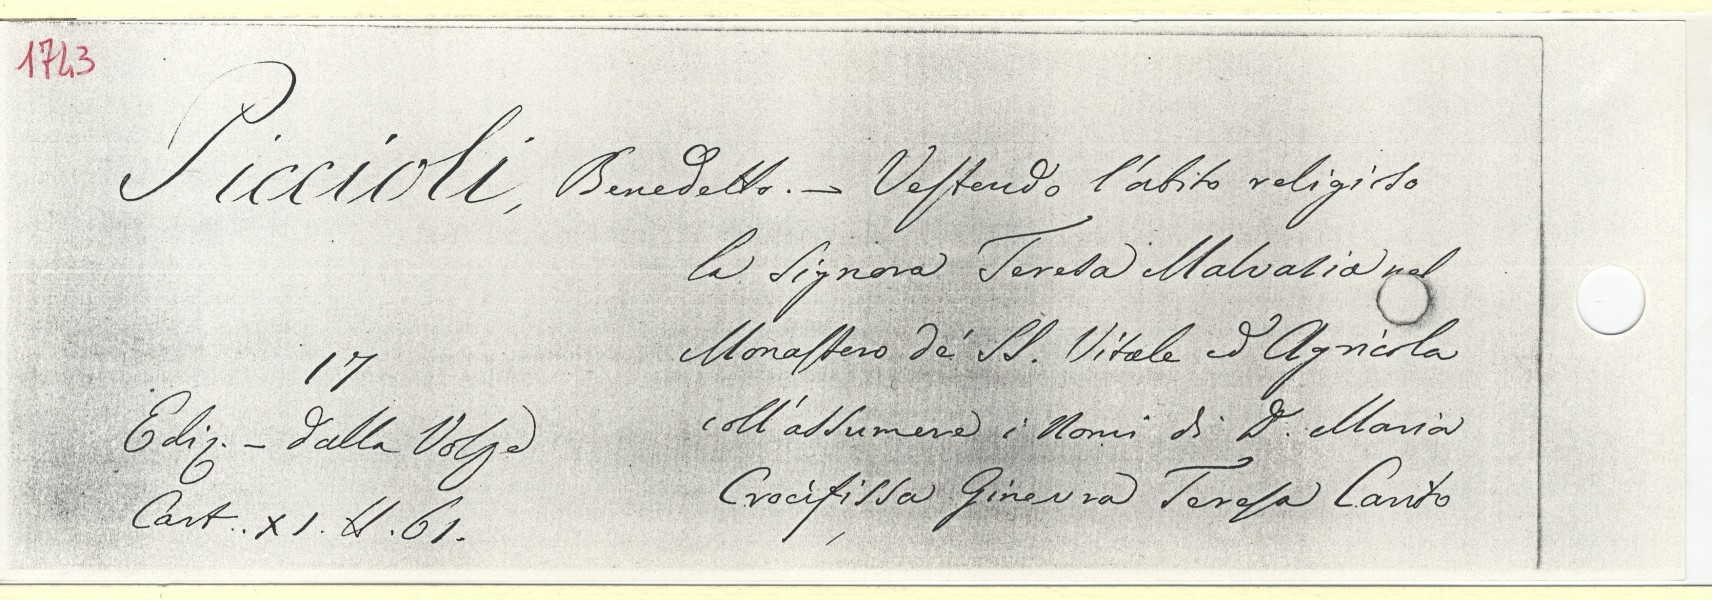 1743
Piccioli, Benedetto. — Vestendo l'abito religioso
la Signora Teresa Malvasia nel
Monastero de' SS. Vitale ed Agricola
17
coll'assumere i Nomi di D. Maria
Ediz. - dalla Volpe
Crocifissa Ginevra Teresa Canto
Cart. XI. N. 61.